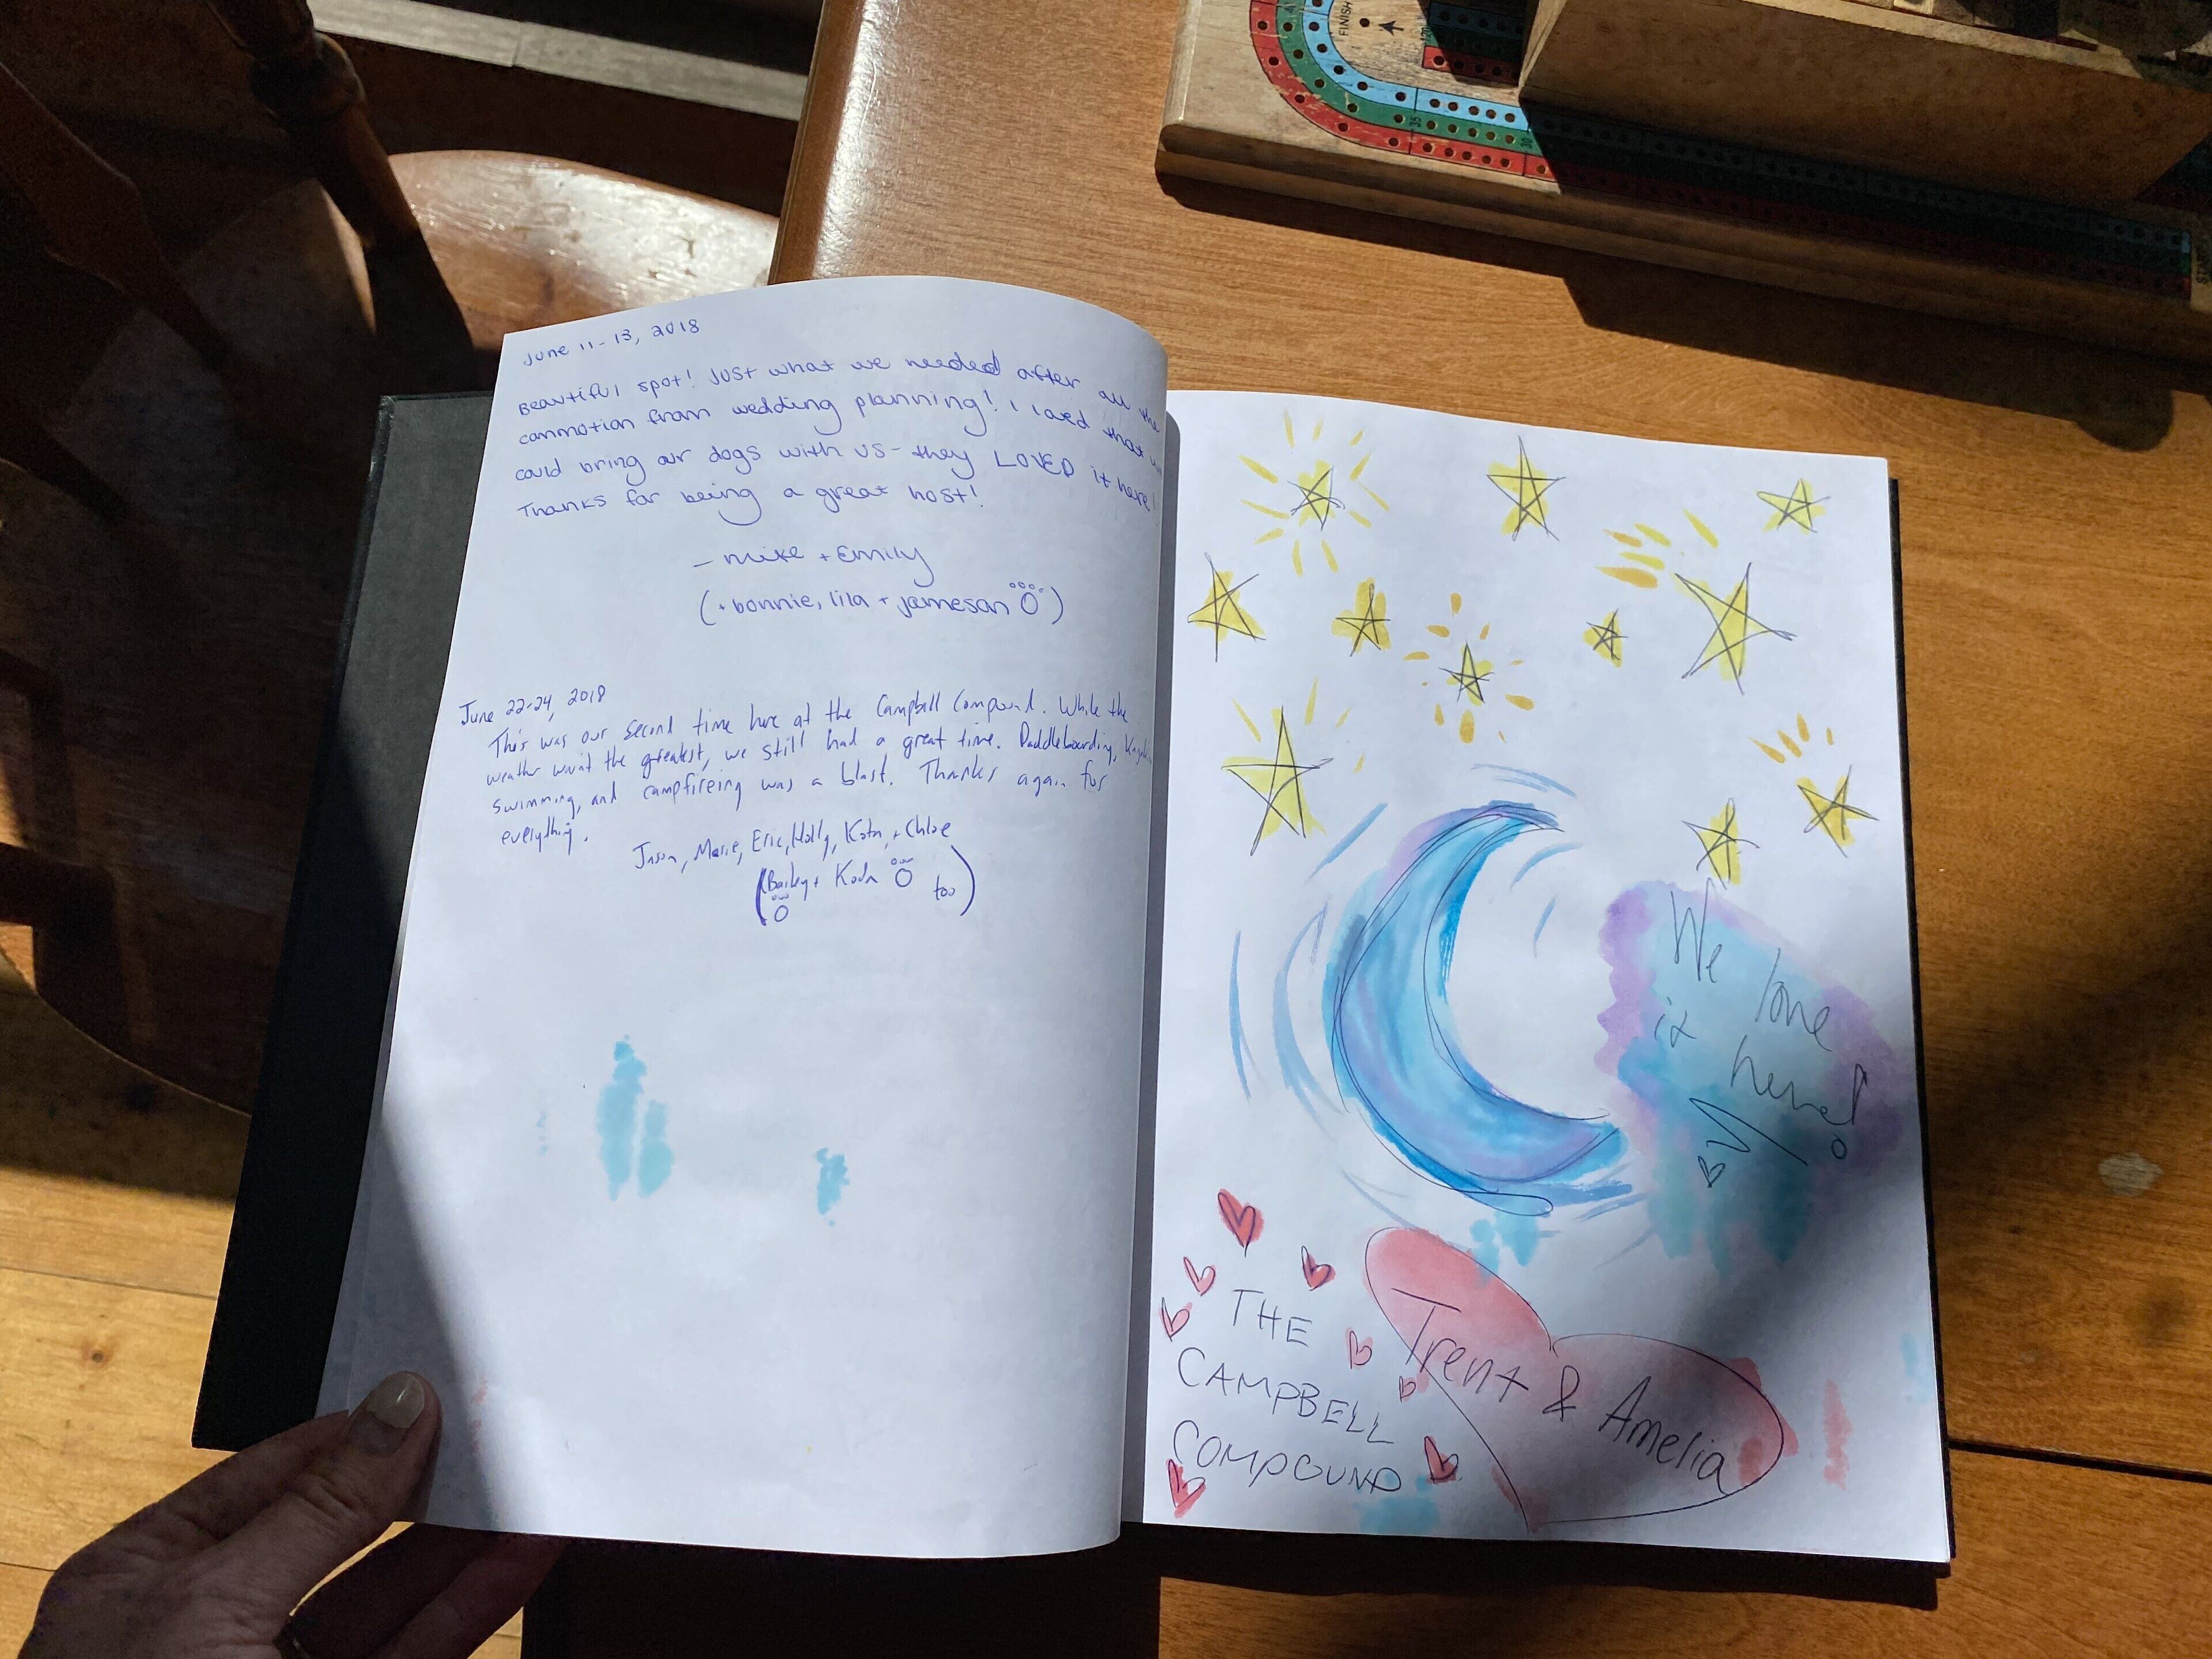 June 11-13, 2018
Beautiful spot! Just what we needed after all the
commotion from wedding planning! I loved that we
could bring our dogs with us - they LOVED it here!
Thanks for being a great host!
- mike + Emily
(+ bonnie, lila + jameson)
June 22-24, 2018
This was our second time here at the Campbell Compound. While the
weather wasn't the greatest, we still had a great time. Paddleboarding,
swimming, and campfireing was a blast. Thanks again for
everything.
Jason, Marie, Eric, Holly, Kotn, + Chloe
(Bailey + Koda too)
We love
it here!
THE
CAMPBELL
COMPOUND
Trent & Amelia
FINISH
120
35
30